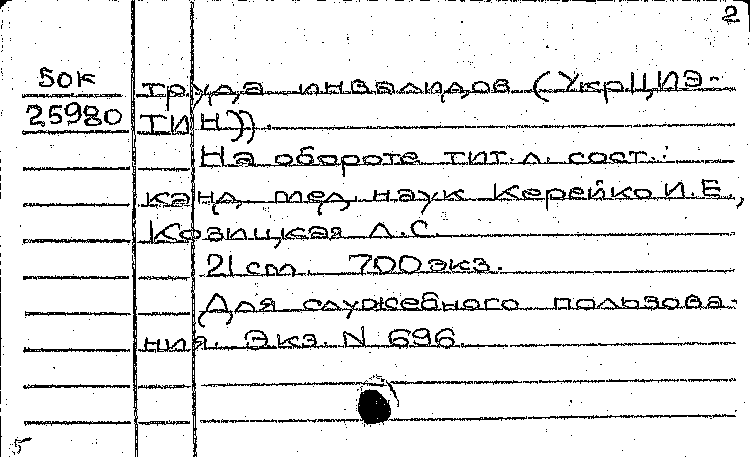 2
50к
25980
труда инвалидов (УкрЦИЭ-
ТИН)).
На обороте тит. л. сост.:
канд. мед. наук Керейко И.Е.,
Козицкая Л.С.
21 см. 700 экз.
Для служебного пользова-
ния. Экз. N 696.
5